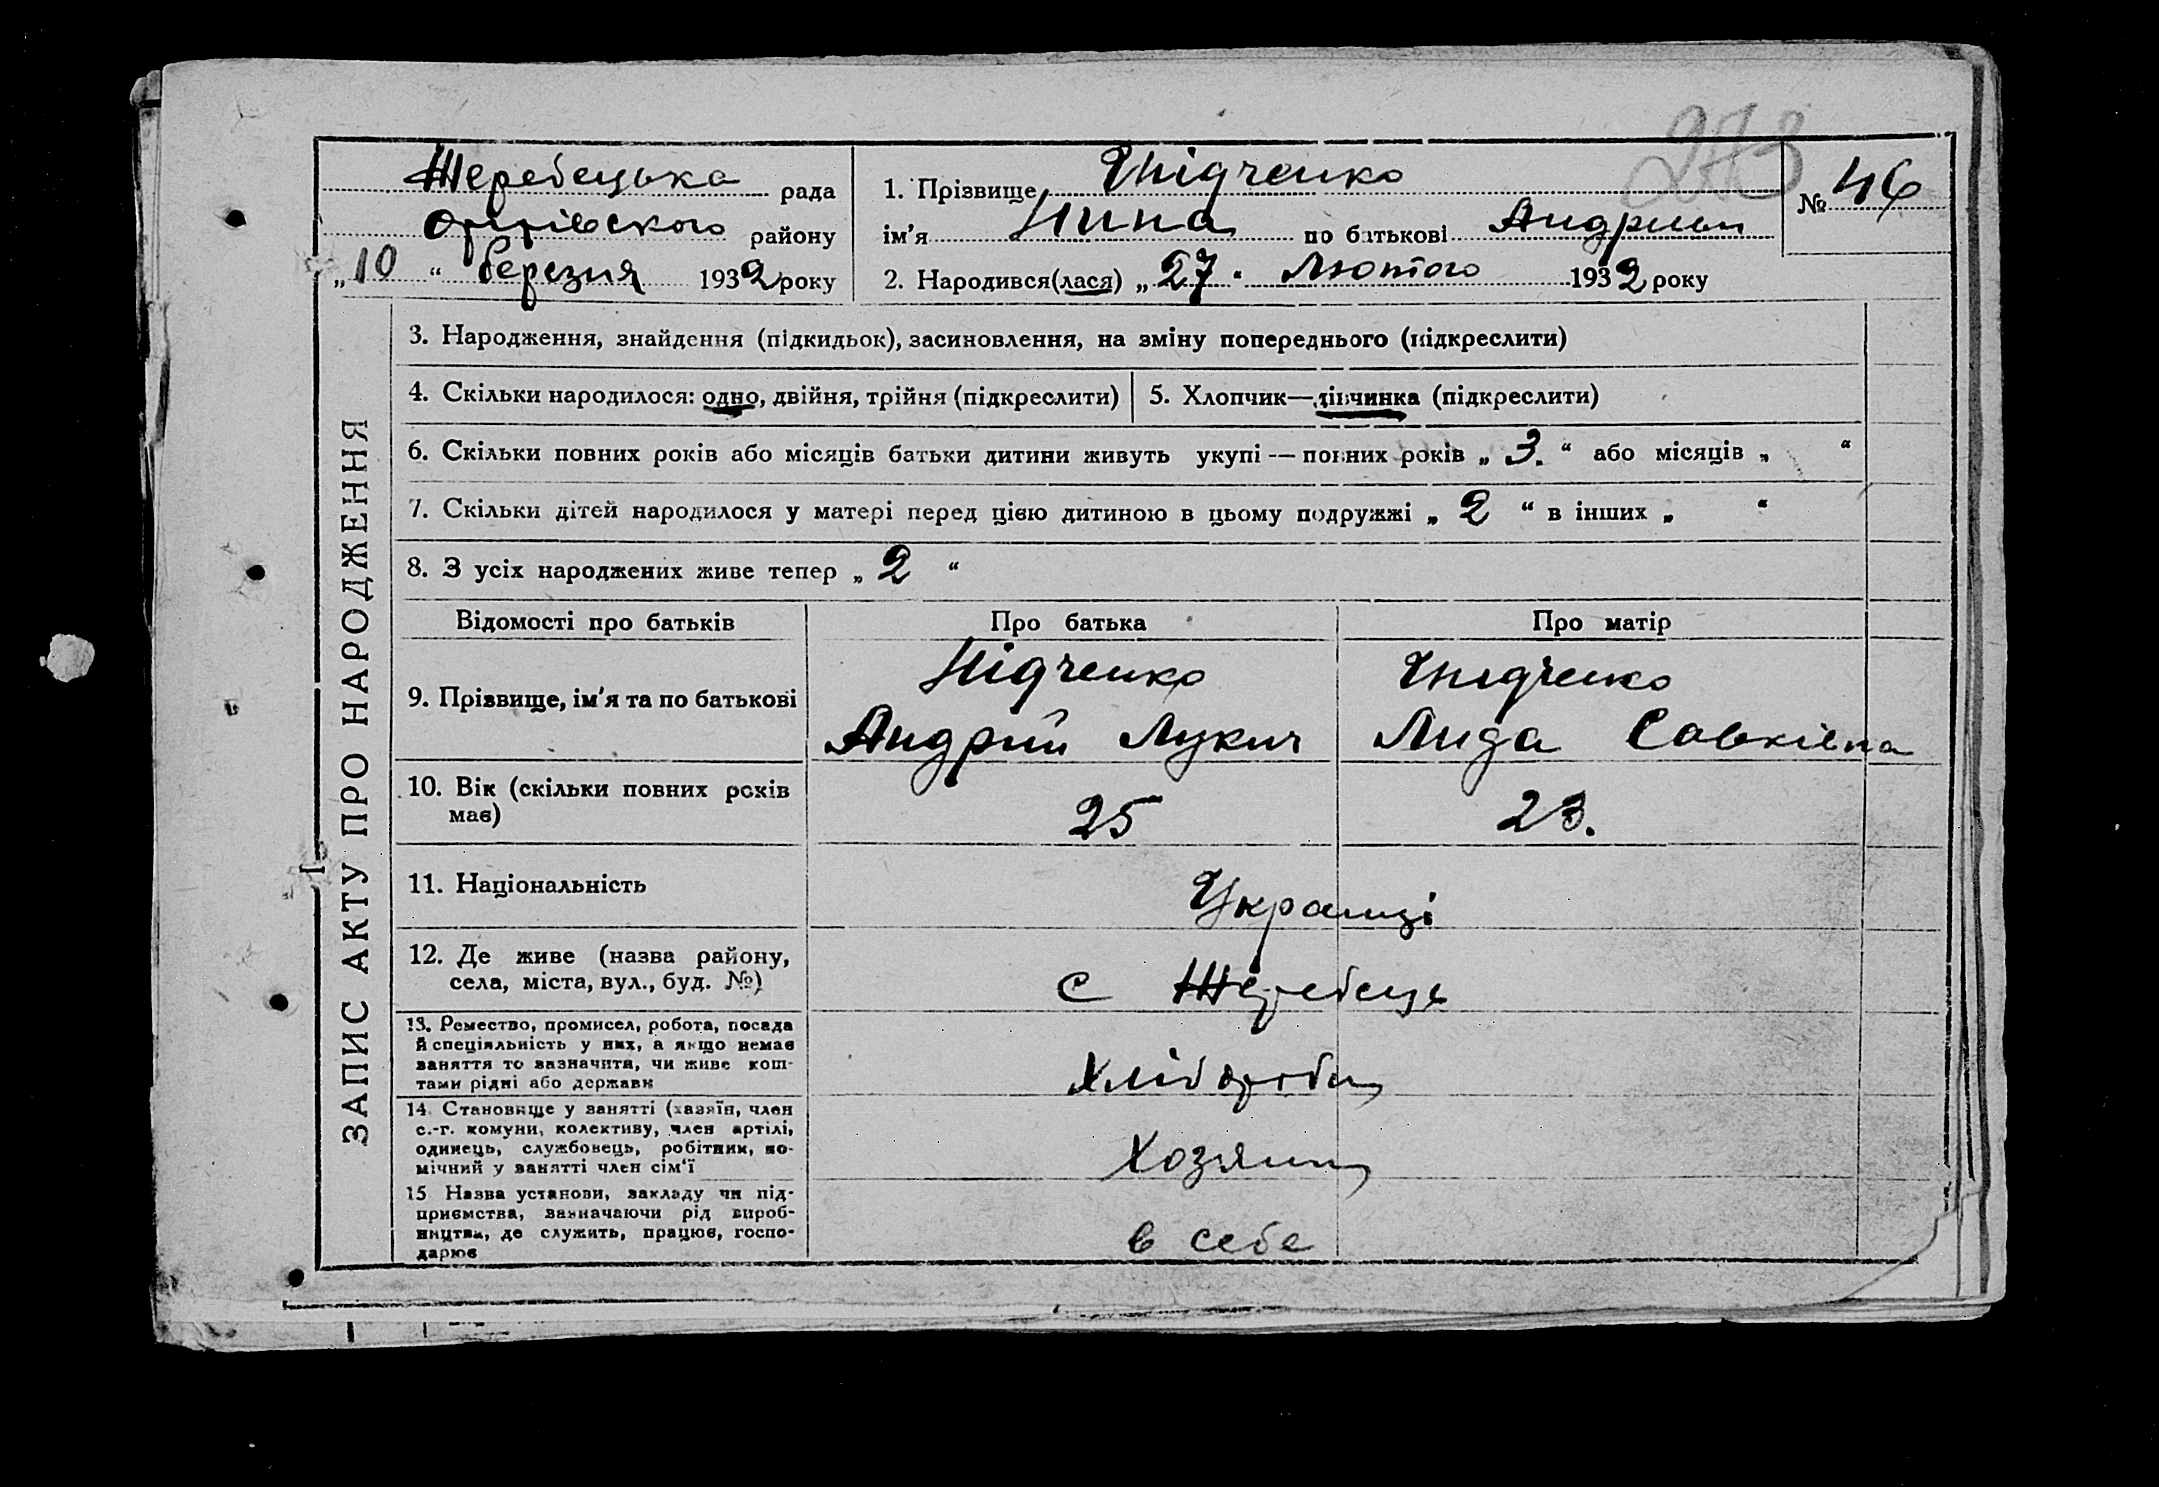 273
Жеребецька рада
Оріхівского району
„10“ березня 1932 року
1. Прізвище Гнідченко
№ 46
ім’я Нина по батькові Андриєв
2. Народився(лася) „27“ Лютого 1932 року
ЗАПИС АКТУ ПРО НАРОДЖЕННЯ
3. Народження, знайдення (підкидьок), засиновлення, на зміну попереднього (підкреслити)
4. Скільки народилося: одно, двійня, трійня (підкреслити) 5. Хлопчик—дівчинка (підкреслити)
6. Скільки повних років або місяців батьки дитини живуть укупі — повних років „3.“ або місяців „ “
7. Скільки дітей народилося у матері перед цією дитиною в цьому подружжі „2“ в інших „ “
8. З усіх народжених живе тепер „2“
Відомості про батьків Про батька Про матір
9. Прізвище, ім’я та по батькові
Нідченко
Андрій Лукич
Гнидченко
Лида Савківна
10. Вік (скільки повних років
має)
25 23.
11. Національність
Украінці
12. Де живе (назва району,
села, міста, вул., буд. №)
с Жеребець
13. Ремество, промисел, робота, посада
й спеціяльність у них, а якщо немає
заняття то зазначити, чи живе кош-
тами рідні або держави
Хлібороби
14. Становище у занятті (хазяїн, член
с.-г. комуни, колективу, член артілі,
одинець, службовець, робітник, по-
мічний у занятті член сім’ї
Хозяин
15 Назва установи, закладу чи під-
приємства, зазначаючи рід вироб-
ництва, де служить, працює, госпо-
дарює
в себе